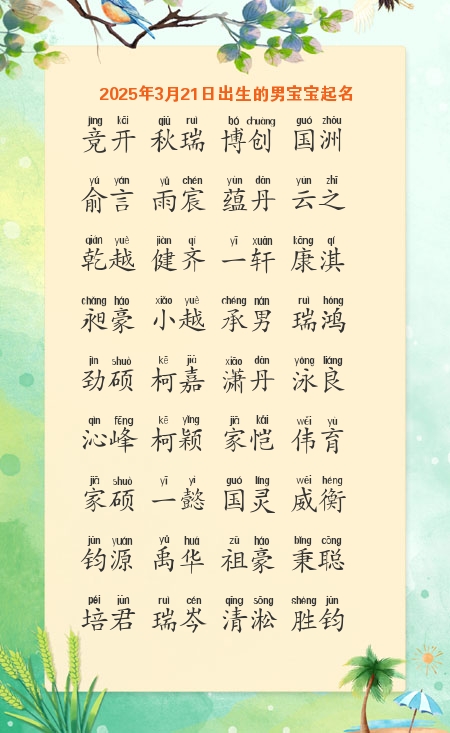 2025年3月21日出生的男宝宝起名
jìng kāi qiū ruì bó chuàng guó zhōu
竞开 秋瑞 博创 国洲
yú yán yǔ chén yùn dān yún zhī
俞言 雨宸 蕴丹 云之
qián yuè jiàn qí yī xuān kāng qí
乾越 健齐 一轩 康淇
chǎng háo xiǎo yuè chéng nán ruì hóng
昶豪 小越 承男 瑞鸿
jìn shuò kē jiā xiāo dān yǒng liáng
劲硕 柯嘉 潇丹 泳良
qìn fēng kē yǐng jiā kǎi wěi yù
沁峰 柯颖 家恺 伟育
jiā shuò yī yì guó líng wēi héng
家硕 一懿 国灵 威衡
jūn yuán yǔ huá zǔ háo bǐng cōng
钧源 禹华 祖豪 秉聪
péi jūn ruì cén qīng sōng shèng jūn
培君 瑞岑 清淞 胜钧